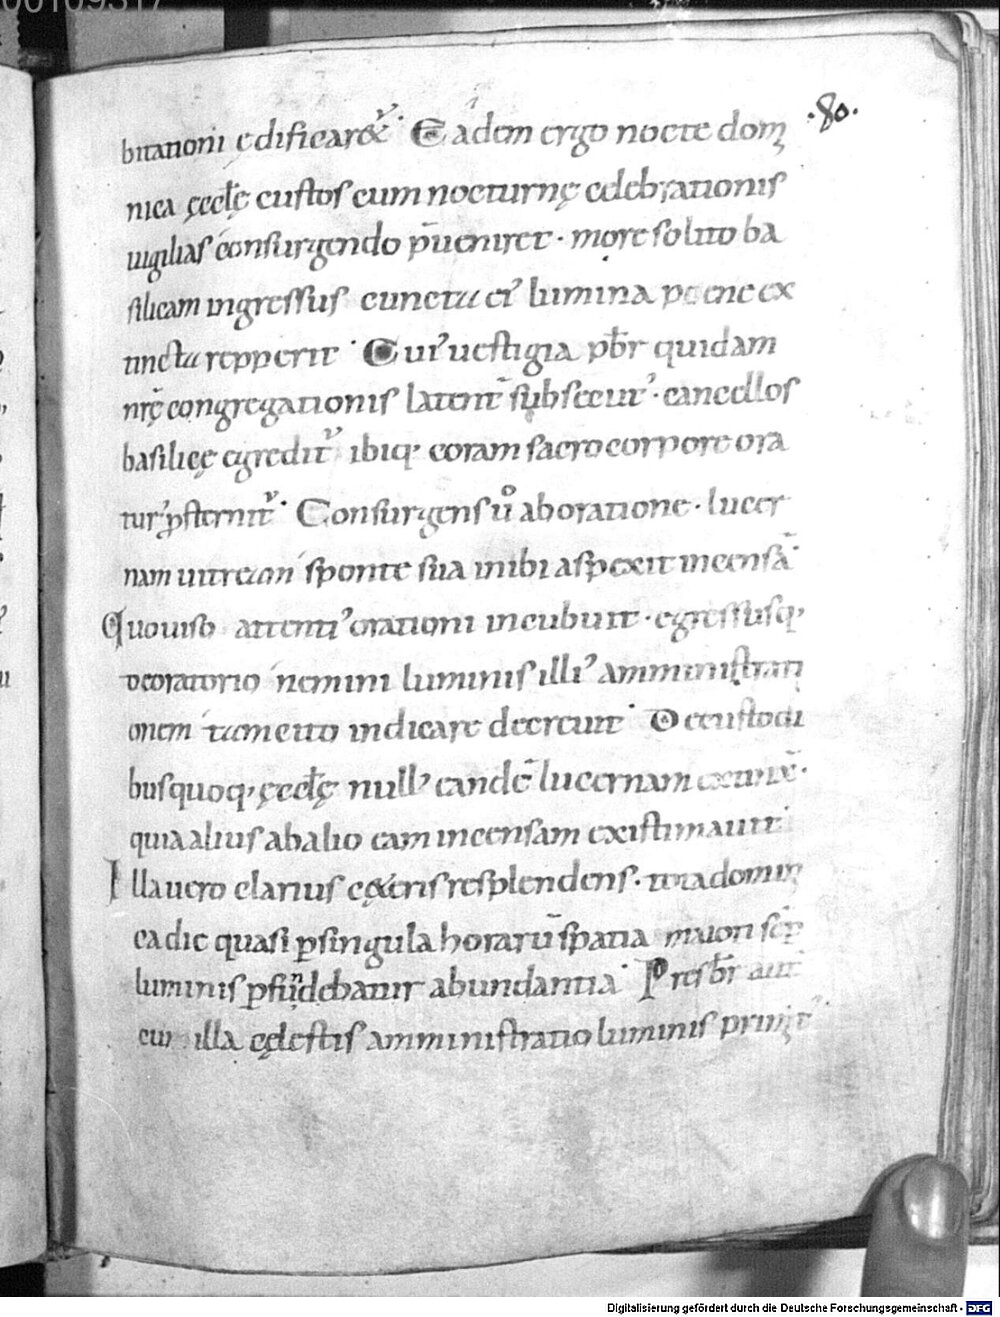 00109317
·80·
bitationi ędificaret᷑· Eadem ergo nocte dom̅
nica ęccłę custos cum nocturnę celebrationis
uigilias consurgendo p̅ueniret · more solito ba
silicam ingressus cuncta ei' lumina poene ex
tincta repperit · Cui' uestigia pb̅r quidam
nr̅ę congregationis latent̅ subsecut' · cancellos
basilicę egredit᷑ ibiq; coram sacro corpore ora
tur' ꝓsternit᷑ · Consurgens ů ab oratione · lucer
nam uitream sponte sua inibi aspexit incensā ·
Quo uiso attenti' orationi incubuit · egressusq;
de oratorio nemini luminis illi' amministrati
onem tam cito indicare decreuit · De custodi
bus quoq; ęccłę null' eandē lucernam
quia alius ab alio eam incensam existimauit
Illa uero clarius cęteris resplendens · tota domini
ca die quasi ꝑ singula horarū spatia maiori
luminis ꝑfundebatur abundantia · Presb̅r aut̅
cui illa cęlestis amministratio luminis
Digitalisierung gefördert durch die Deutsche Forschungsgemeinschaft - DFG